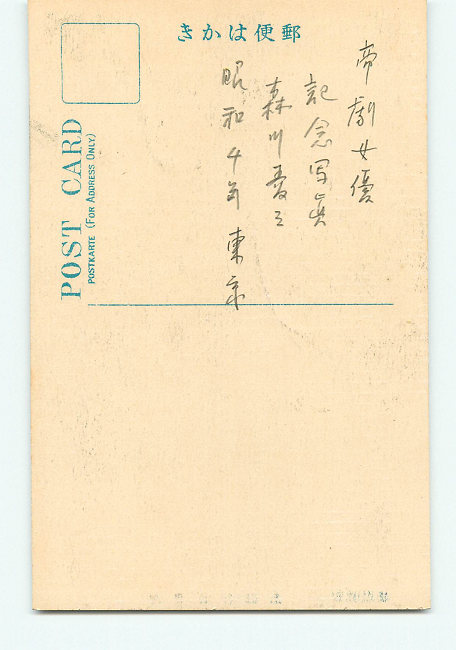 きかは便郵
帝劇女優
記念写真
森川
昭和4年 東京
POST CARD
POSTKARTE (FOR ADDRESS ONLY)